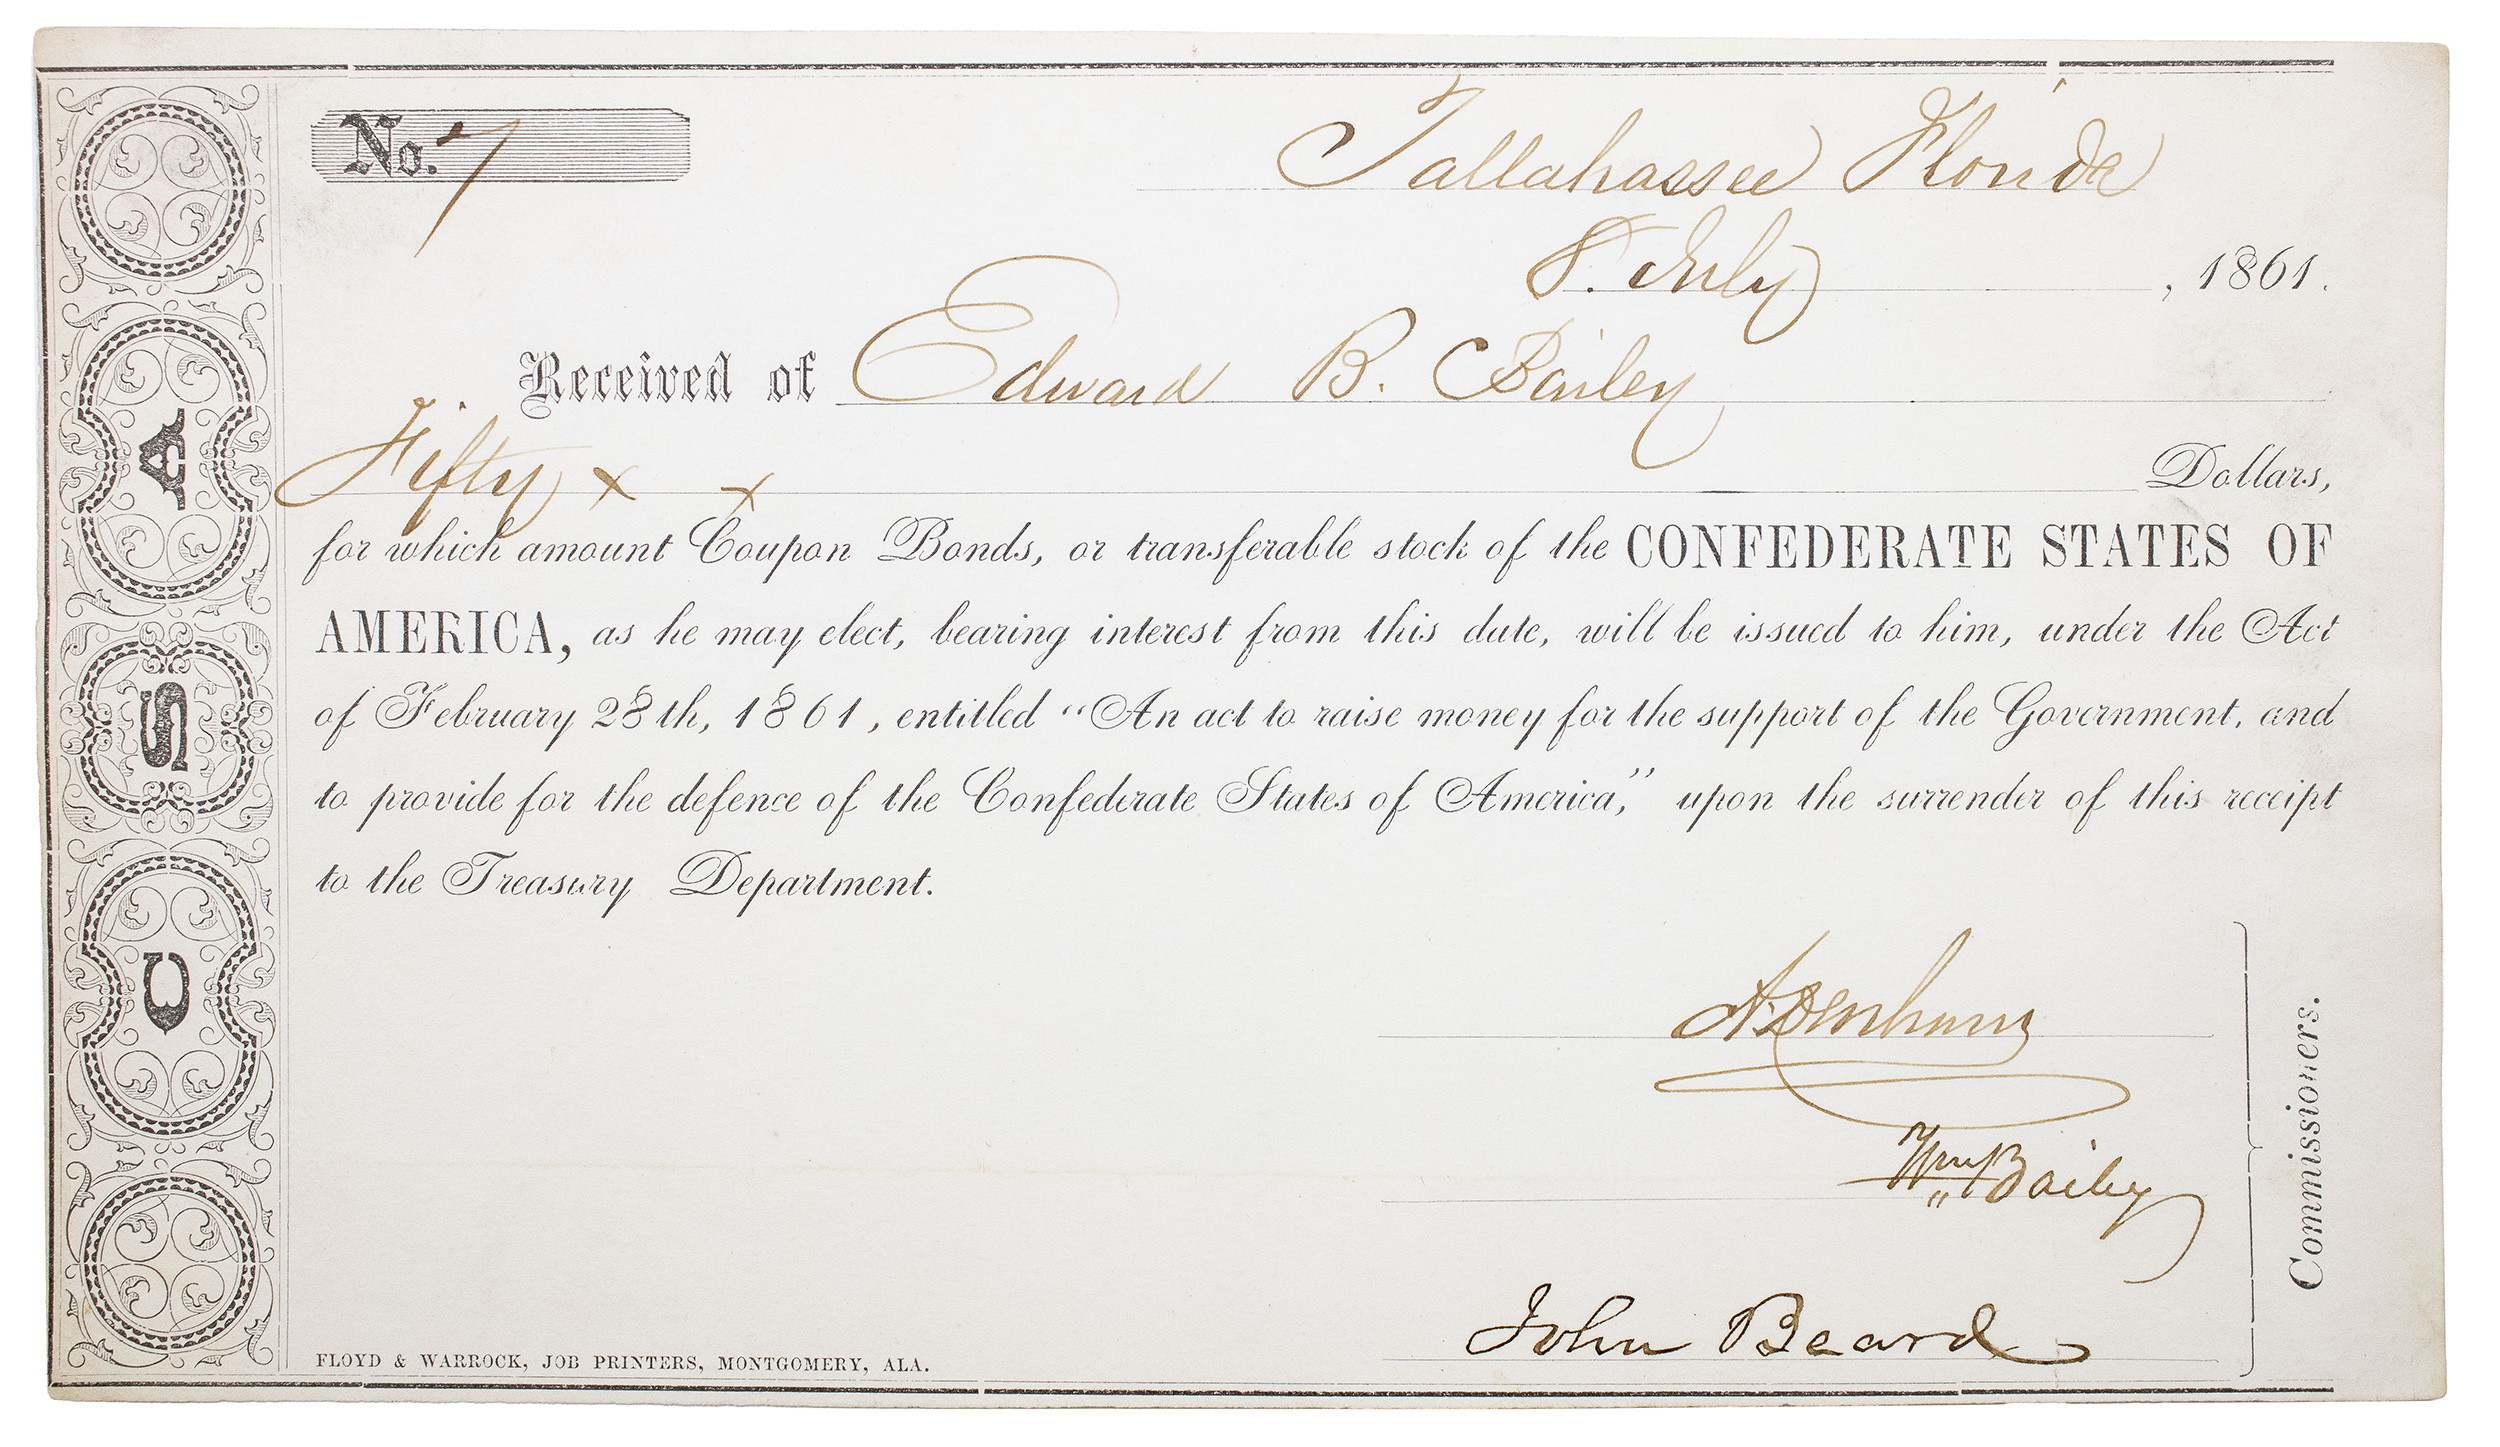 No. 7
Tallahassee Florida
8. July, 1861.
Received of Edward B. Bailey
Fifty x x Dollars,
for which amount Coupon Bonds, or transferable stock of the CONFEDERATE STATES OF
AMERICA, as he may elect, bearing interest from this date, will be issued to him, under the Act
of February 28th, 1861, entitled "An act to raise money for the support of the Government, and
to provide for the defence of the Confederate States of America," upon the surrender of this receipt
to the Treasury Department.
A. Denham
Wm B Bailey
John Beard
Commissioners.
FLOYD & WARROCK, JOB PRINTERS, MONTGOMERY, ALA.
C S A